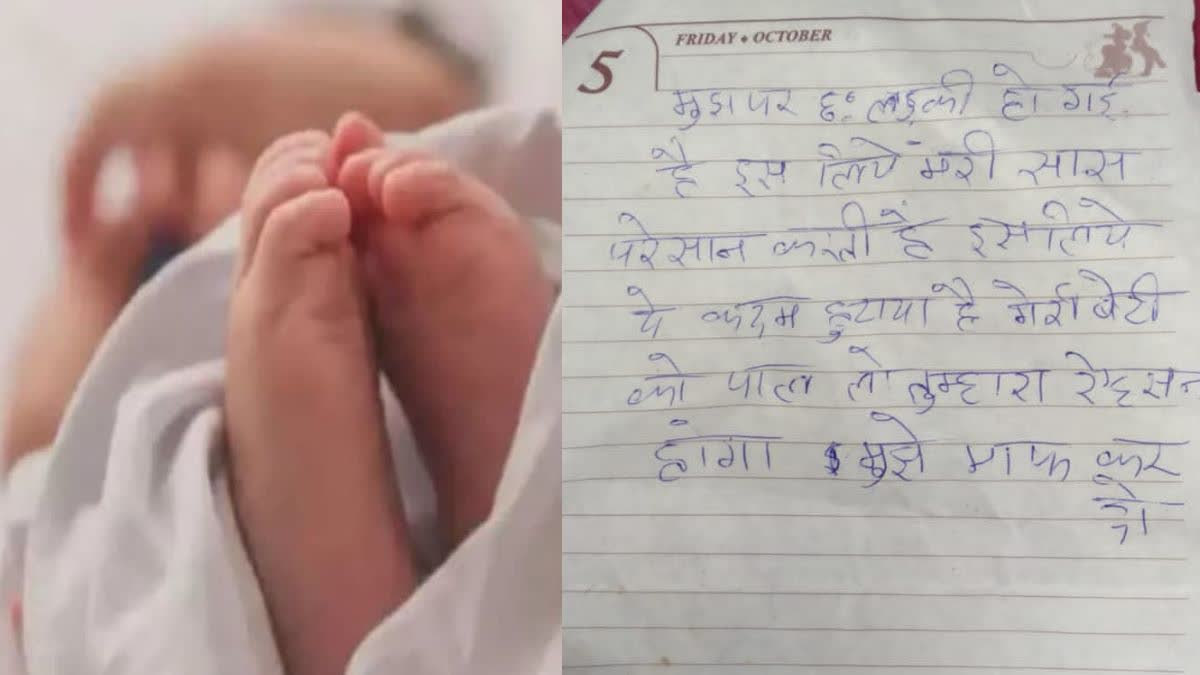 5
FRIDAY • OCTOBER
मुझ पर छः लड़की हो गई
है इस लिये मेरी सास
परेसान करती है इसलिये
ये कदम हुटाया है मेरी बेटी
को पाल लो तुम्हारा ऐहसन
होगा मुझे माफ कर
दो